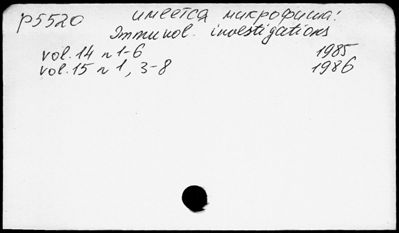 p5520 имеется микрофиша:
Immunol. investigations
vol. 14 n 1-6 1985
vol. 15 n 1, 3-8 1986